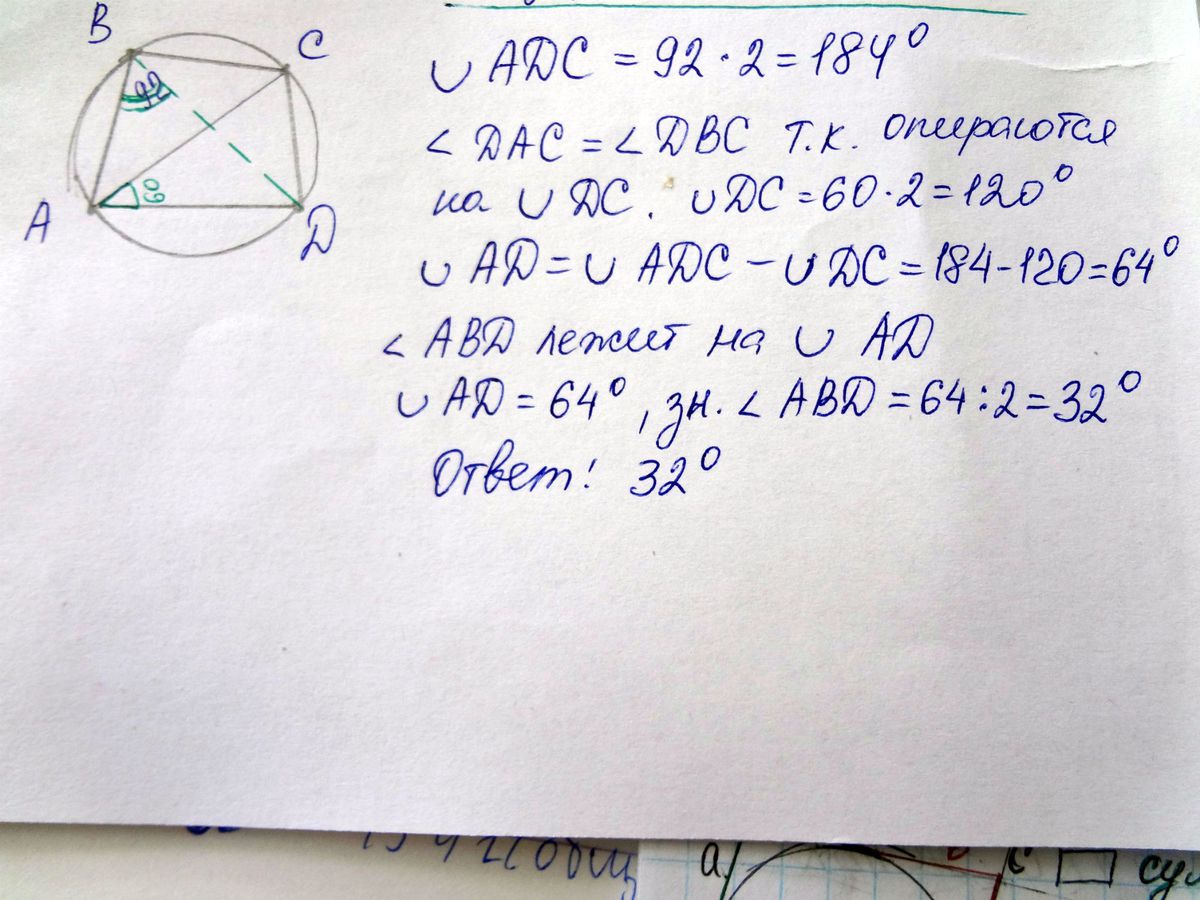 B
C
92
60
A
D
∪ ADC = 92 · 2 = 184°
∠ DAC = ∠ DBC т.к. опираются
на ∪ DC. ∪ DC = 60 · 2 = 120°
∪ AD = ∪ ADC - ∪ DC = 184 - 120 = 64°
∠ ABD лежит на ∪ AD
∪ AD = 64°, зн. ∠ ABD = 64 : 2 = 32°
Ответ! 32°
a